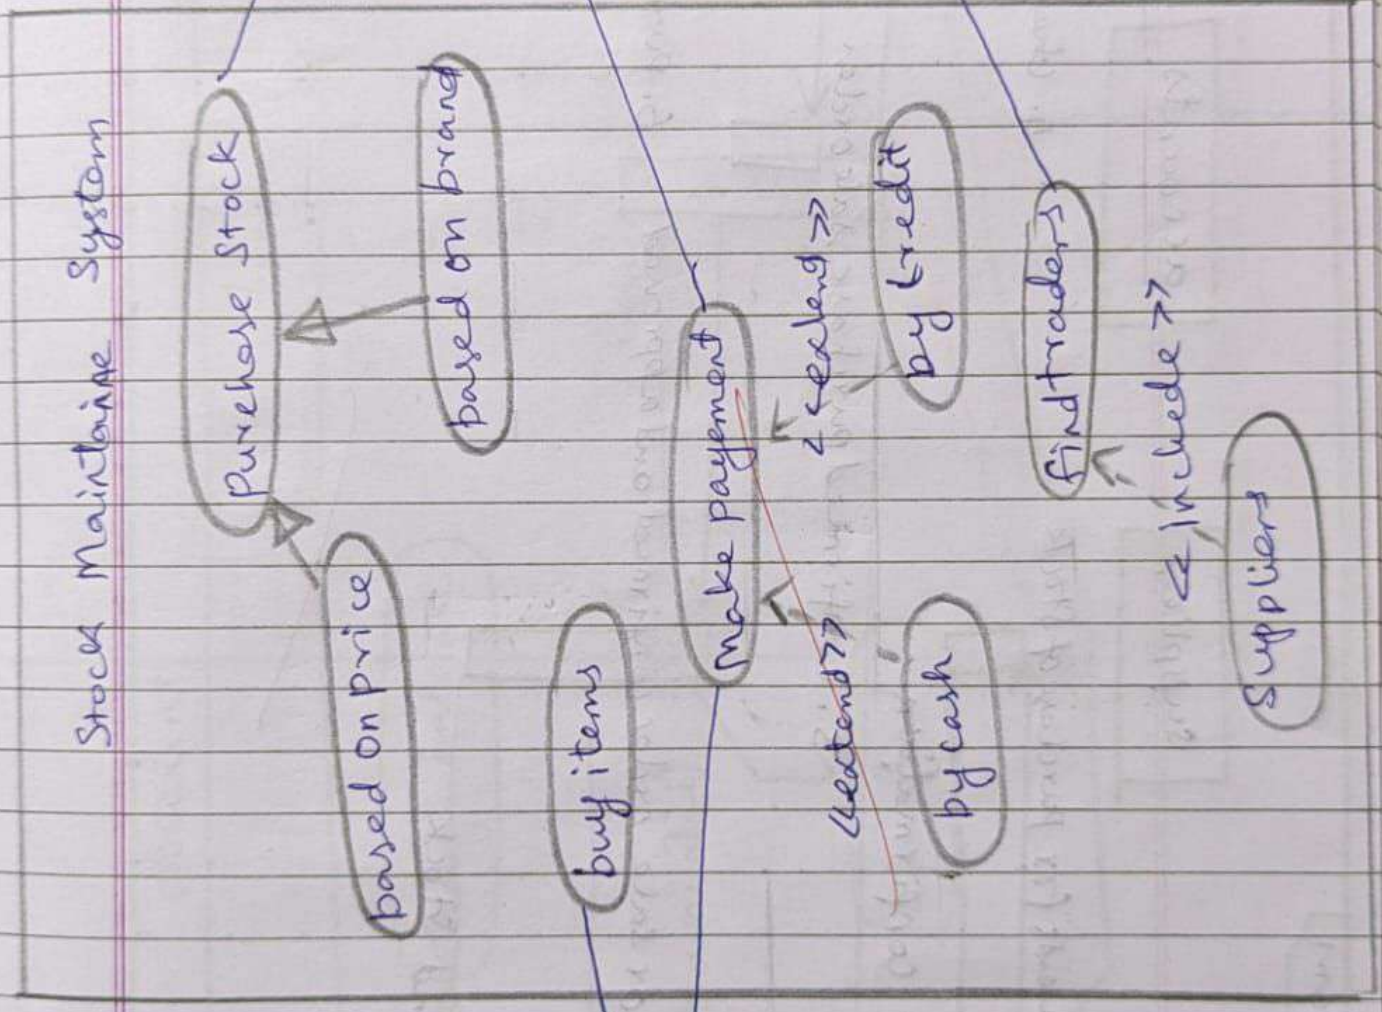 Stock Maintaine System
Purehase Stock
based on price
based on brand
buy items
Make payement
<<extend>>
<<extend>>
by cash
by credit
find traders
<<include>>
Suppliers